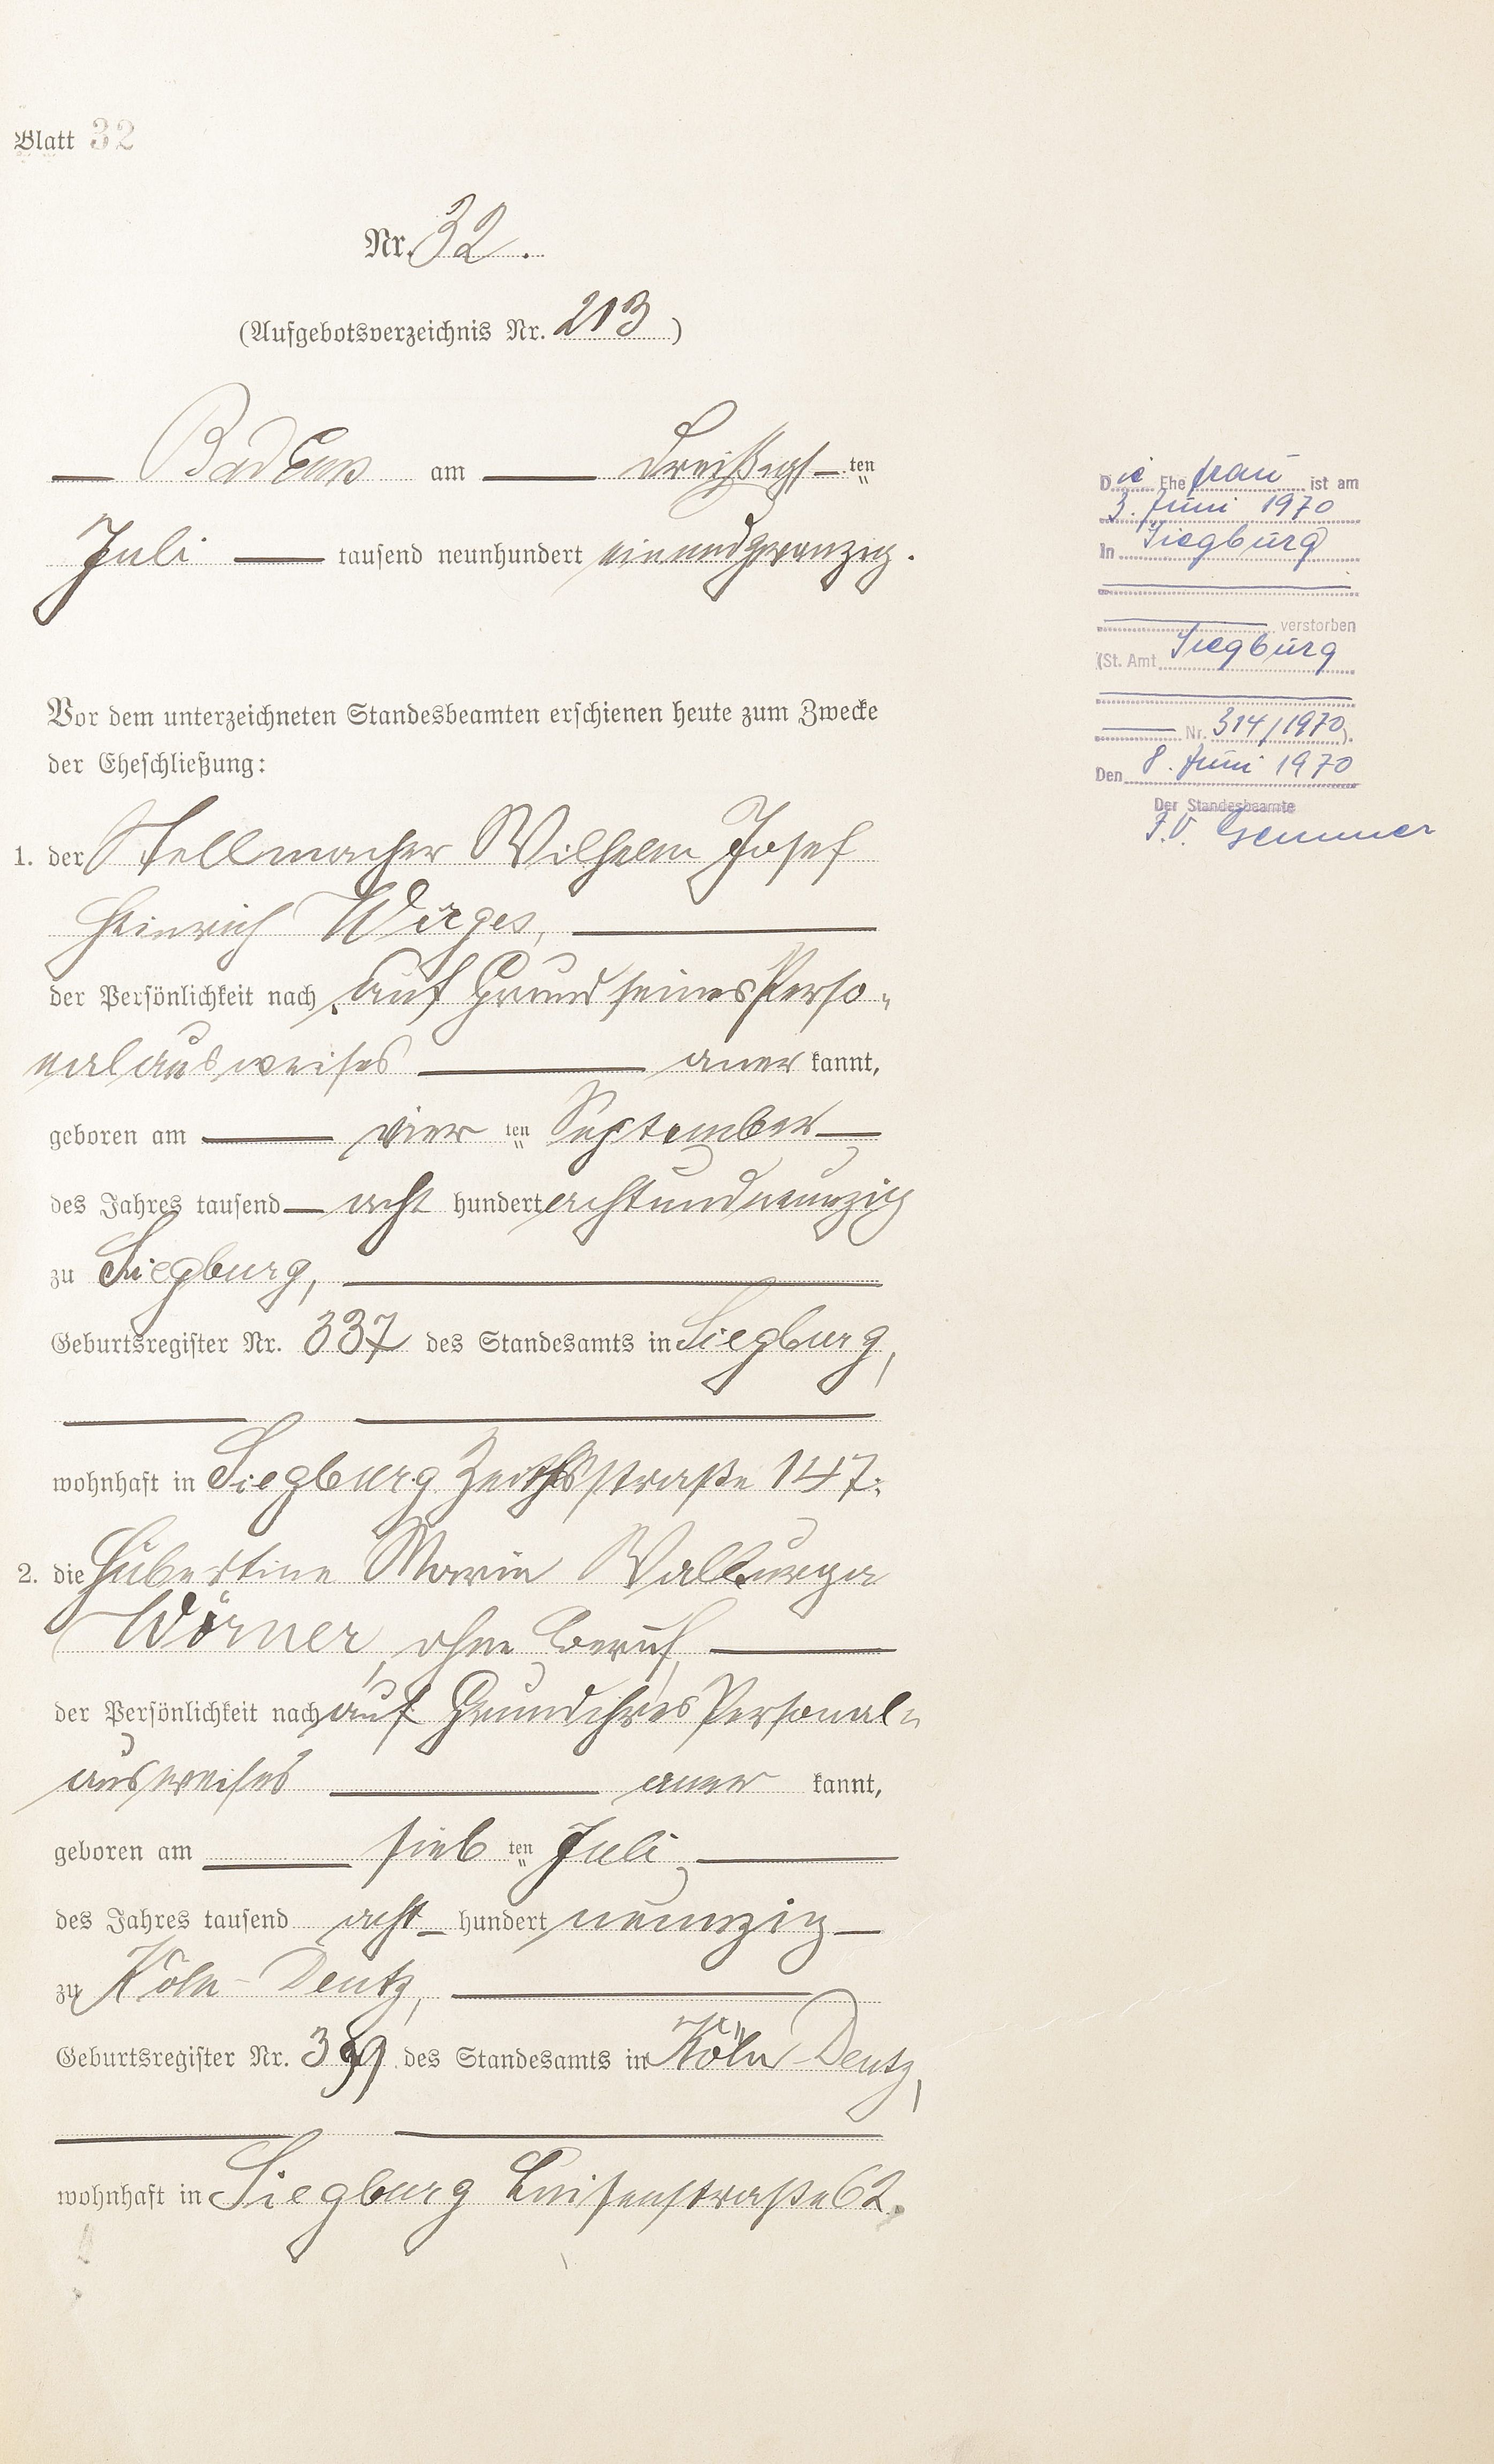 Blatt 32
Nr. 32.
(Aufgebotsverzeichnis Nr. 213)
Bad Ems am Dreißigsten
Juli tausend neunhundert einundzwanzig.
Vor dem unterzeichneten Standesbeamten erschienen heute zum Zwecke
der Eheschließung:
1. der Stellmacher Wilhelm Josef
Heinrich Wirges,
der Persönlichkeit nach auf Grund seines Perso-
nalausweises anerkannt,
geboren am vierten September
des Jahres tausend acht hundert achtundneunzig
zu Siegburg,
Geburtsregister Nr. 337 des Standesamts in Siegburg,
wohnhaft in Siegburg Zeithsstraße 147;
2. die Hubertine Maria Walburga
Wörner, ohne Beruf,
der Persönlichkeit nach auf Grund ihres Personal-
ausweises anerkannt,
geboren am siebten Juli
des Jahres tausend acht hundert neunzig
zu Köln-Deutz,
Geburtsregister Nr. des Standesamts in Köln Deutz,
wohnhaft in Siegburg Luisenstraße 62.
Die Ehefrau ist am
3. Juni 1970
in Siegburg
verstorben
(St. Amt Siegburg
Nr. 314/1970).
Den 8. Juni 1970
Der Standesbeamte
I.V.